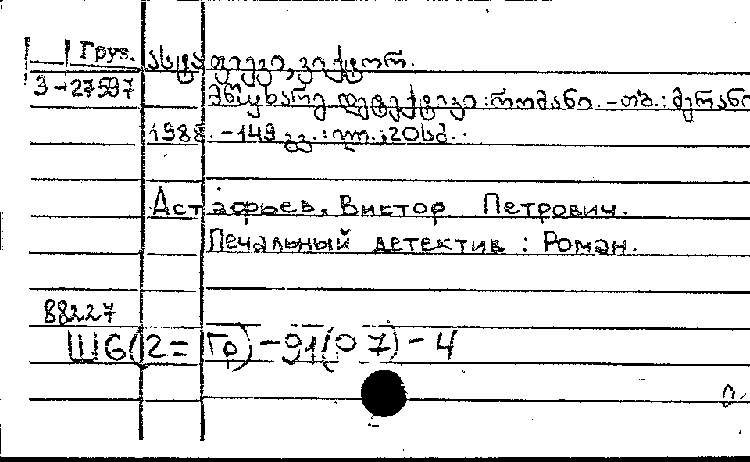 Груз. ასტაფიევი, ვიქტორ.
3-27597 მწუხარე დეტექტივი : რომანი. - თბ. : მერანი
1988. - 149 გვ. : ილ. ; 20 სმ.
Астафьев, Виктор Петрович.
Печальный детектив : Роман.
88227
Ш6(2=Гр)-91(07)-4